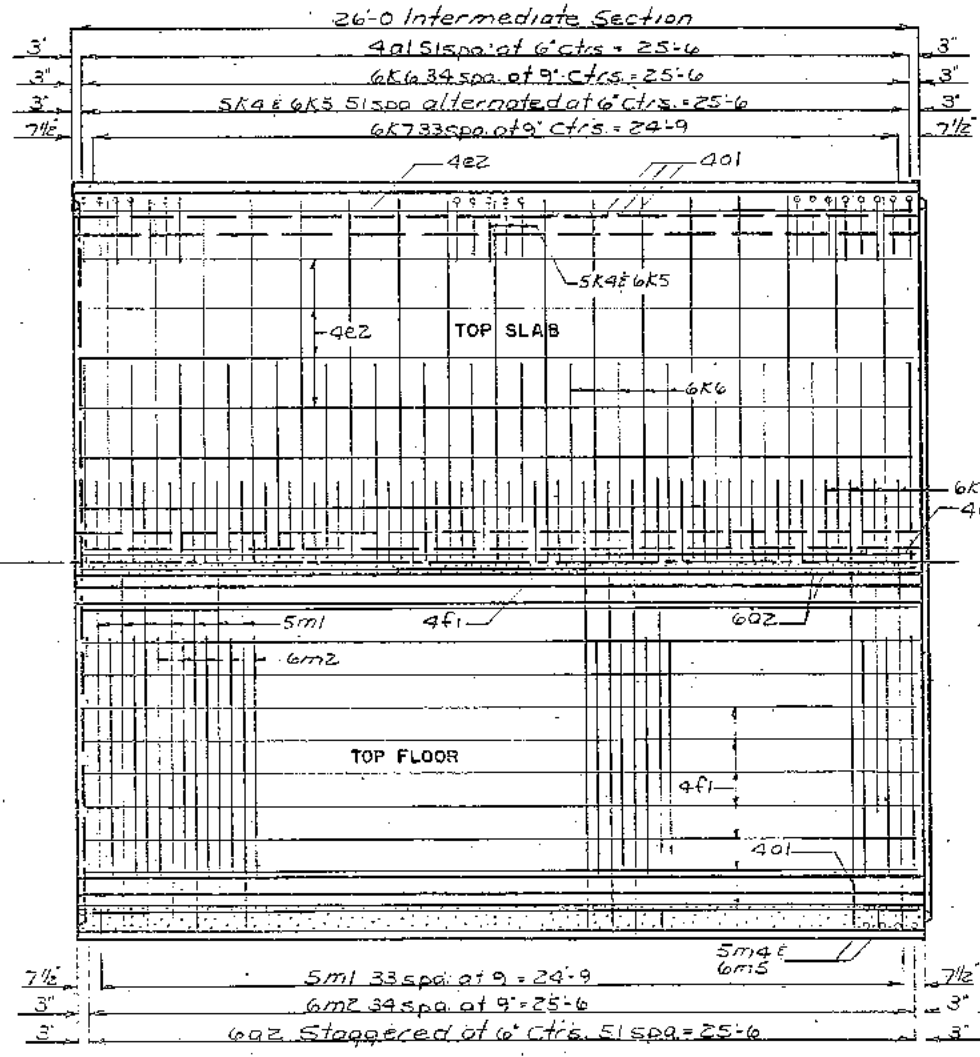 26'-0 Intermediate Section
3" 4a1 51 spa. at 6" ctrs = 25'-6 3"
3" 6K6 34 spa. at 9" Ctrs. = 25'-6 3"
3" 5K4 & 6K5 51 spa alternated at 6" Ctrs. = 25'-6 3"
7½" 6K7 33 spa. at 9" Ctrs. = 24'-9 7½"
4e2 4a1
5K4 & 6K5
4e2 TOP SLAB
6K6
6K
4
5m1 4f1 6a2
6m2
TOP FLOOR
4f1
4a1
5m4 &
6m5
7½" 5m1 33 spa. at 9 = 24'-9 7½"
3" 6m2 34 spa. at 9" = 25'-6 3"
3" 6a2 Staggered at 6" Ctrs. 51 spa = 25'-6 3"